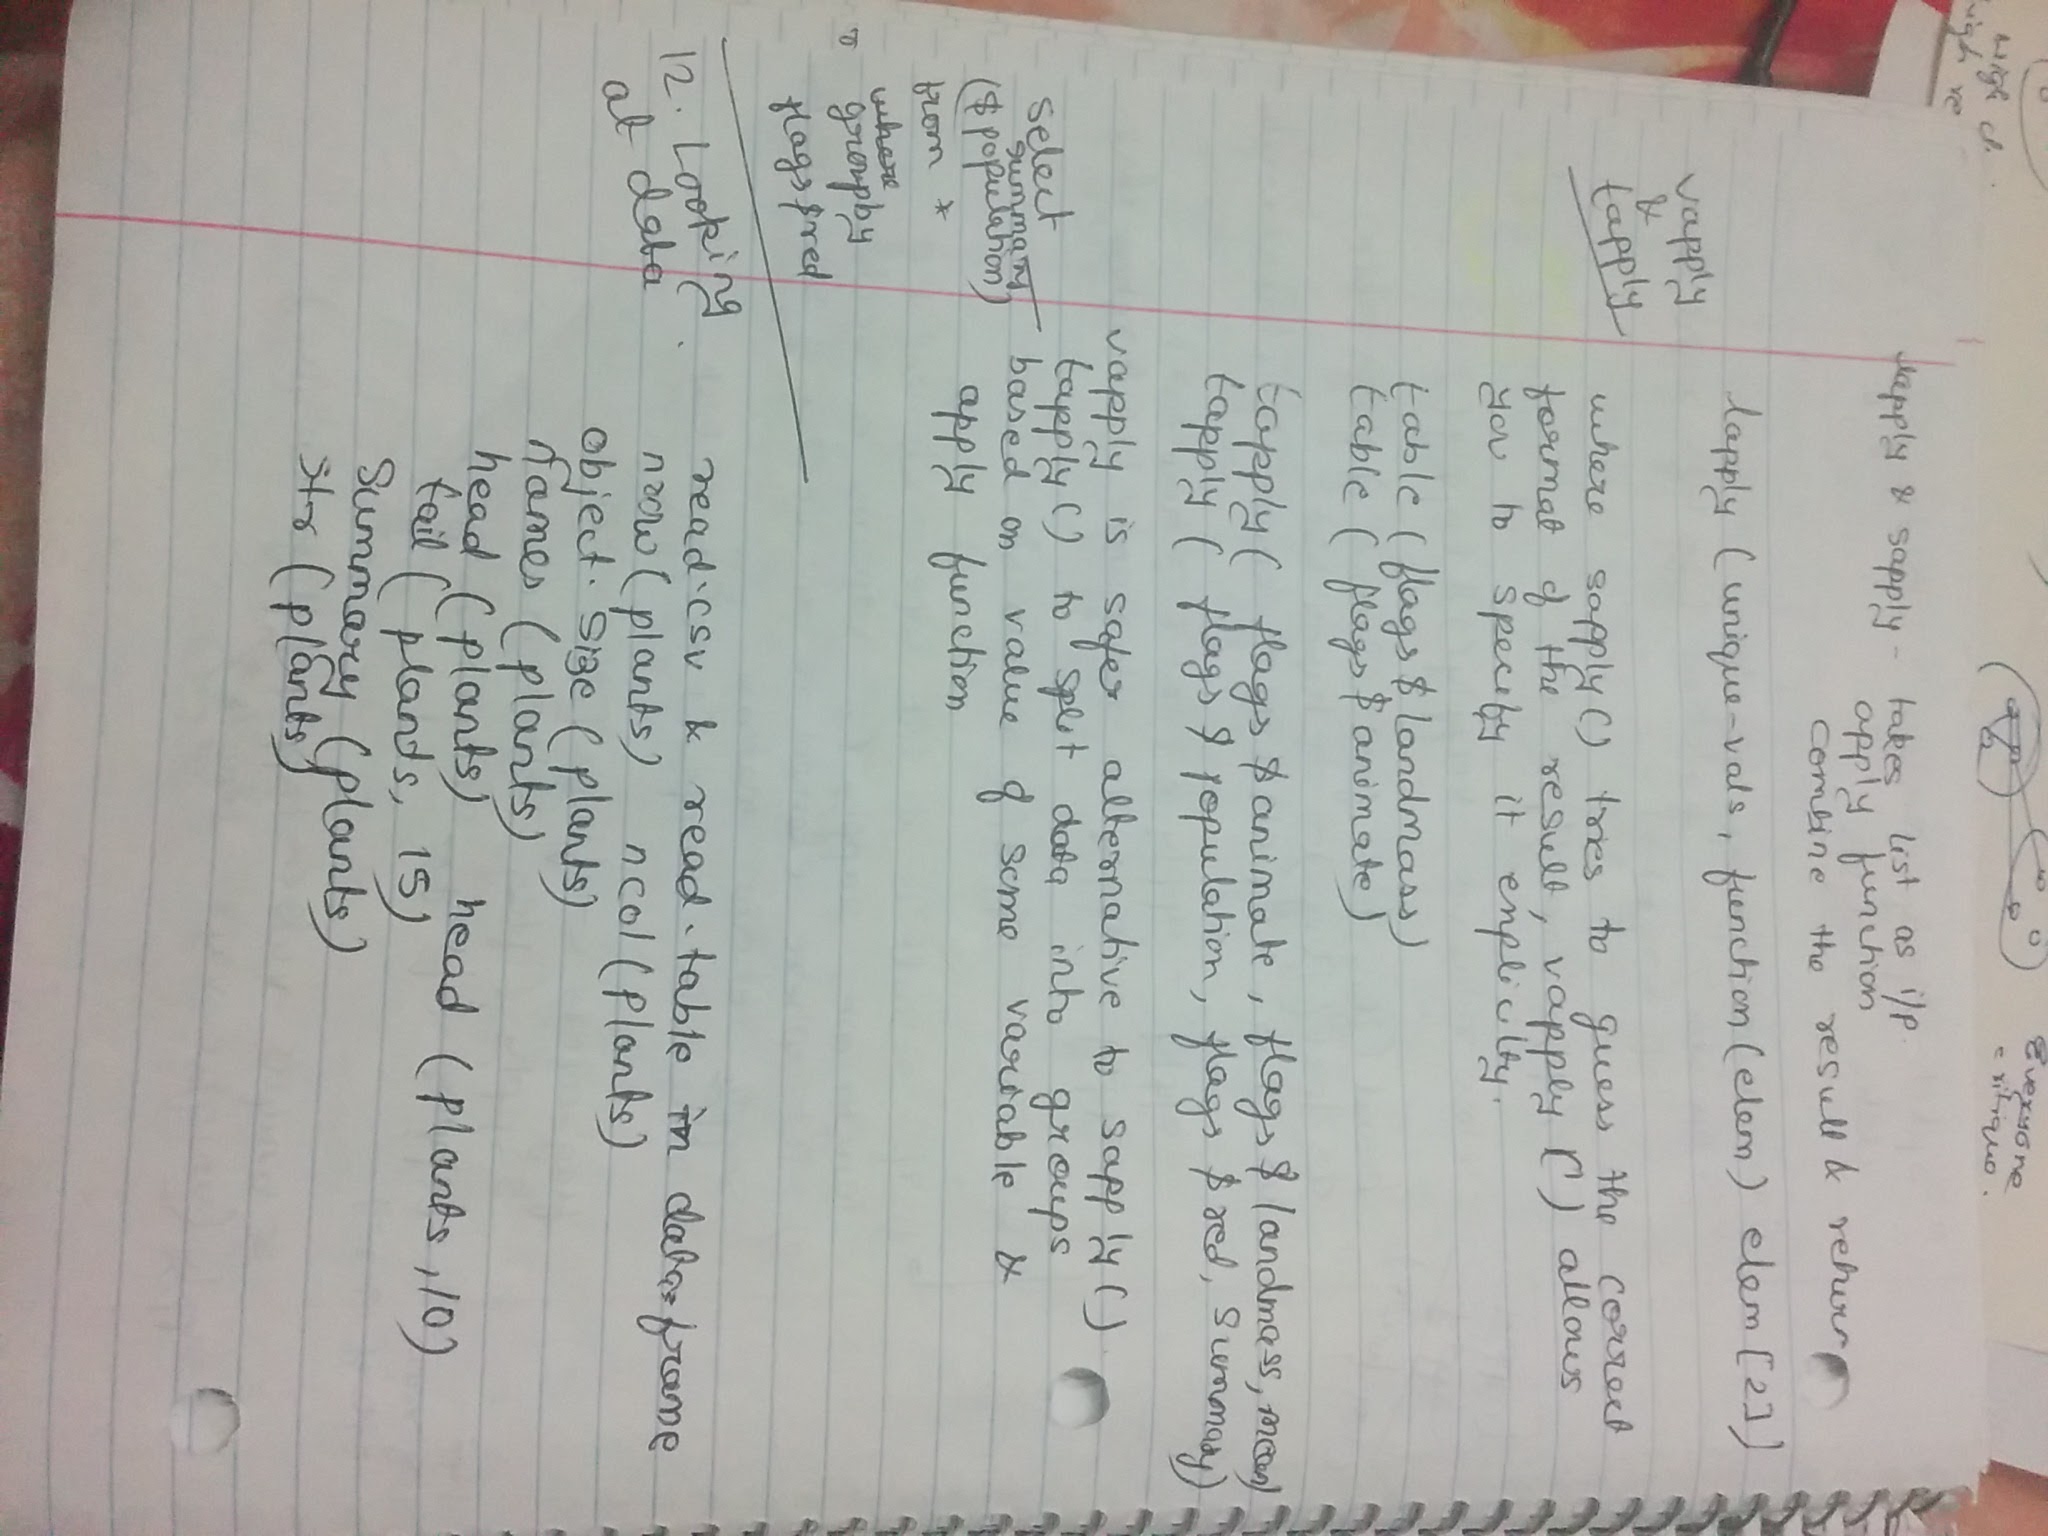 lapply & sapply - takes list as i/p.
apply function
combine the result & return
lapply (unique-vals, function(elem) elem[2])
vapply
&
tapply
where sapply() tries to guess the correct
format of the result, vapply() allows
you to specify it explicilty.
table (flags $ landmass)
table (flags $ animate)
tapply( flags $ animate, flags $ landmass, mean)
tapply( flags $ population, flags $ red, summary)
vapply is safer alternative to sapply().
tapply() to split data into groups
based on value of some variable &
apply function
select
summary
($ population)
from *
where
groupby
flags $ red
12. Looking
at data
read.csv & read.table in data=frame
nrow(plants) ncol(plants)
object.size(plants)
names (plants)
head (plants) head (plants, 10)
tail (plants, 15)
Summary (plants)
str (plants)
Everyone